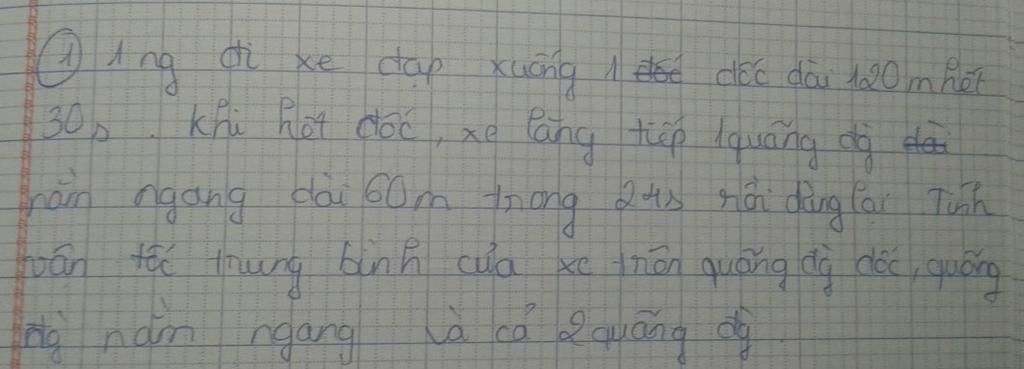 ① 1 ng đi xe đạp xuống 1 dốc dài 120m hết
30s. Khi hết dốc, xe lăng tiếp 1 quãng đg
nằm ngang dài 60m trong 24s rồi dừng lại. Tính
vận tốc trung bình của xe trên quãng đg dốc, quãng
đg nằm ngang và cả 2 quãng đg.